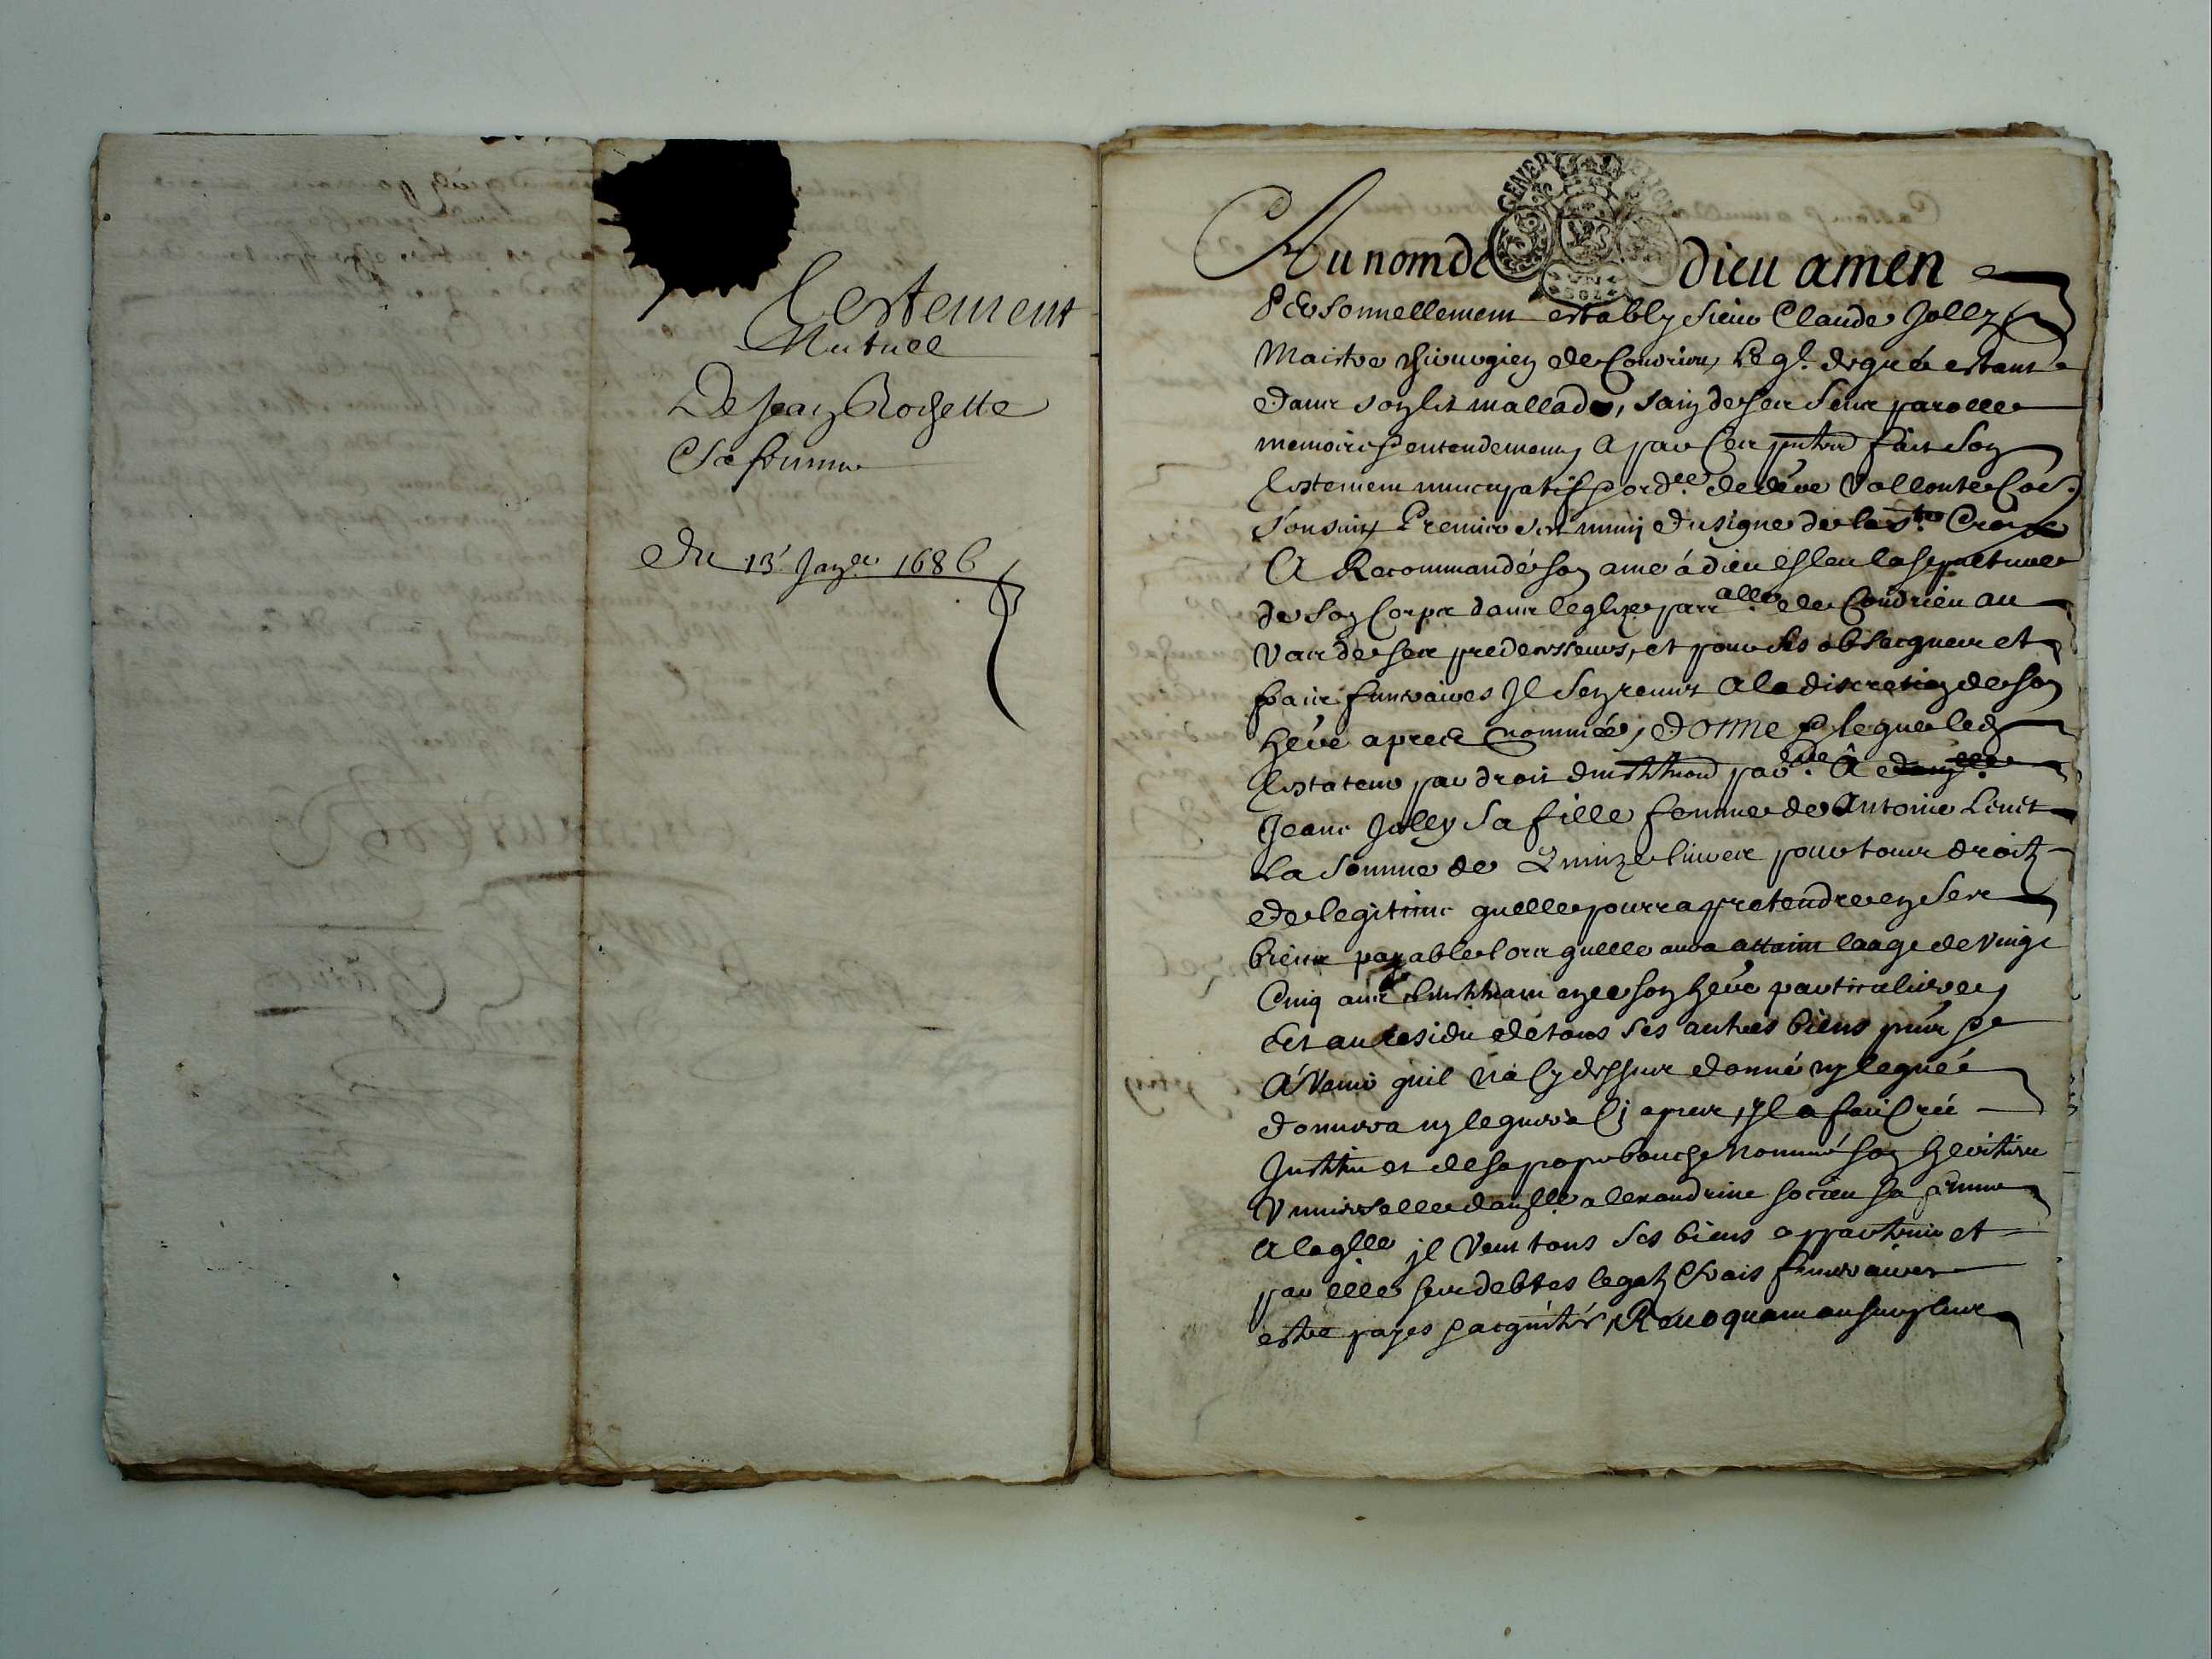 Testement
Mutuel
De Jean Rochette
& sa femme
Du 13e Janer 1686
GENER
Au nom de dieu amen
Personnellement estably sieur Claude Jolly
Maistre chirurgien de Condrieu, Leql. de gré estant
dans son lict mallade, sain de ses sens parolle
memoire & entendement, a par ces pntes fait son
testement nuncupatif & ordce de dere vollonte
sensuit Premier sest muni du signe de la ste Croix
A Recommandé son ame á dieu esleu la sepulture
de son Corps dans leglize parralle de Condrieu au
vas de ses predecesseurs, et pour ses obsecques et
frais funeraires Jl sen remet a la discretion de son
here apres nommée, donne & legue led
testateur par droit dinstitution parre A
Jeane Jolly sa fille femme de Antoine
La somme de Quinze livres pour tous droitz
de legitime quelle pourra pretendre en ses
biens payable lors quelle aura attaint laage de vingt
Cinq ans linstituant en ce son here particuliere,
Et au residu de tous ses autres biens pnts &
A venir quil na cy dessus donné ny legué
donnera ny leguera cj apres, Jl a fait Créé
Institué et de sa propre bouche nommé son heritiere
Vniverselle alexandrine socieu sa femme
A laqlle jl veut tous ses biens appartenir et
par elle ses debtes legatz frais funeraires
estre payes & acquités, Reuoquant au surplus